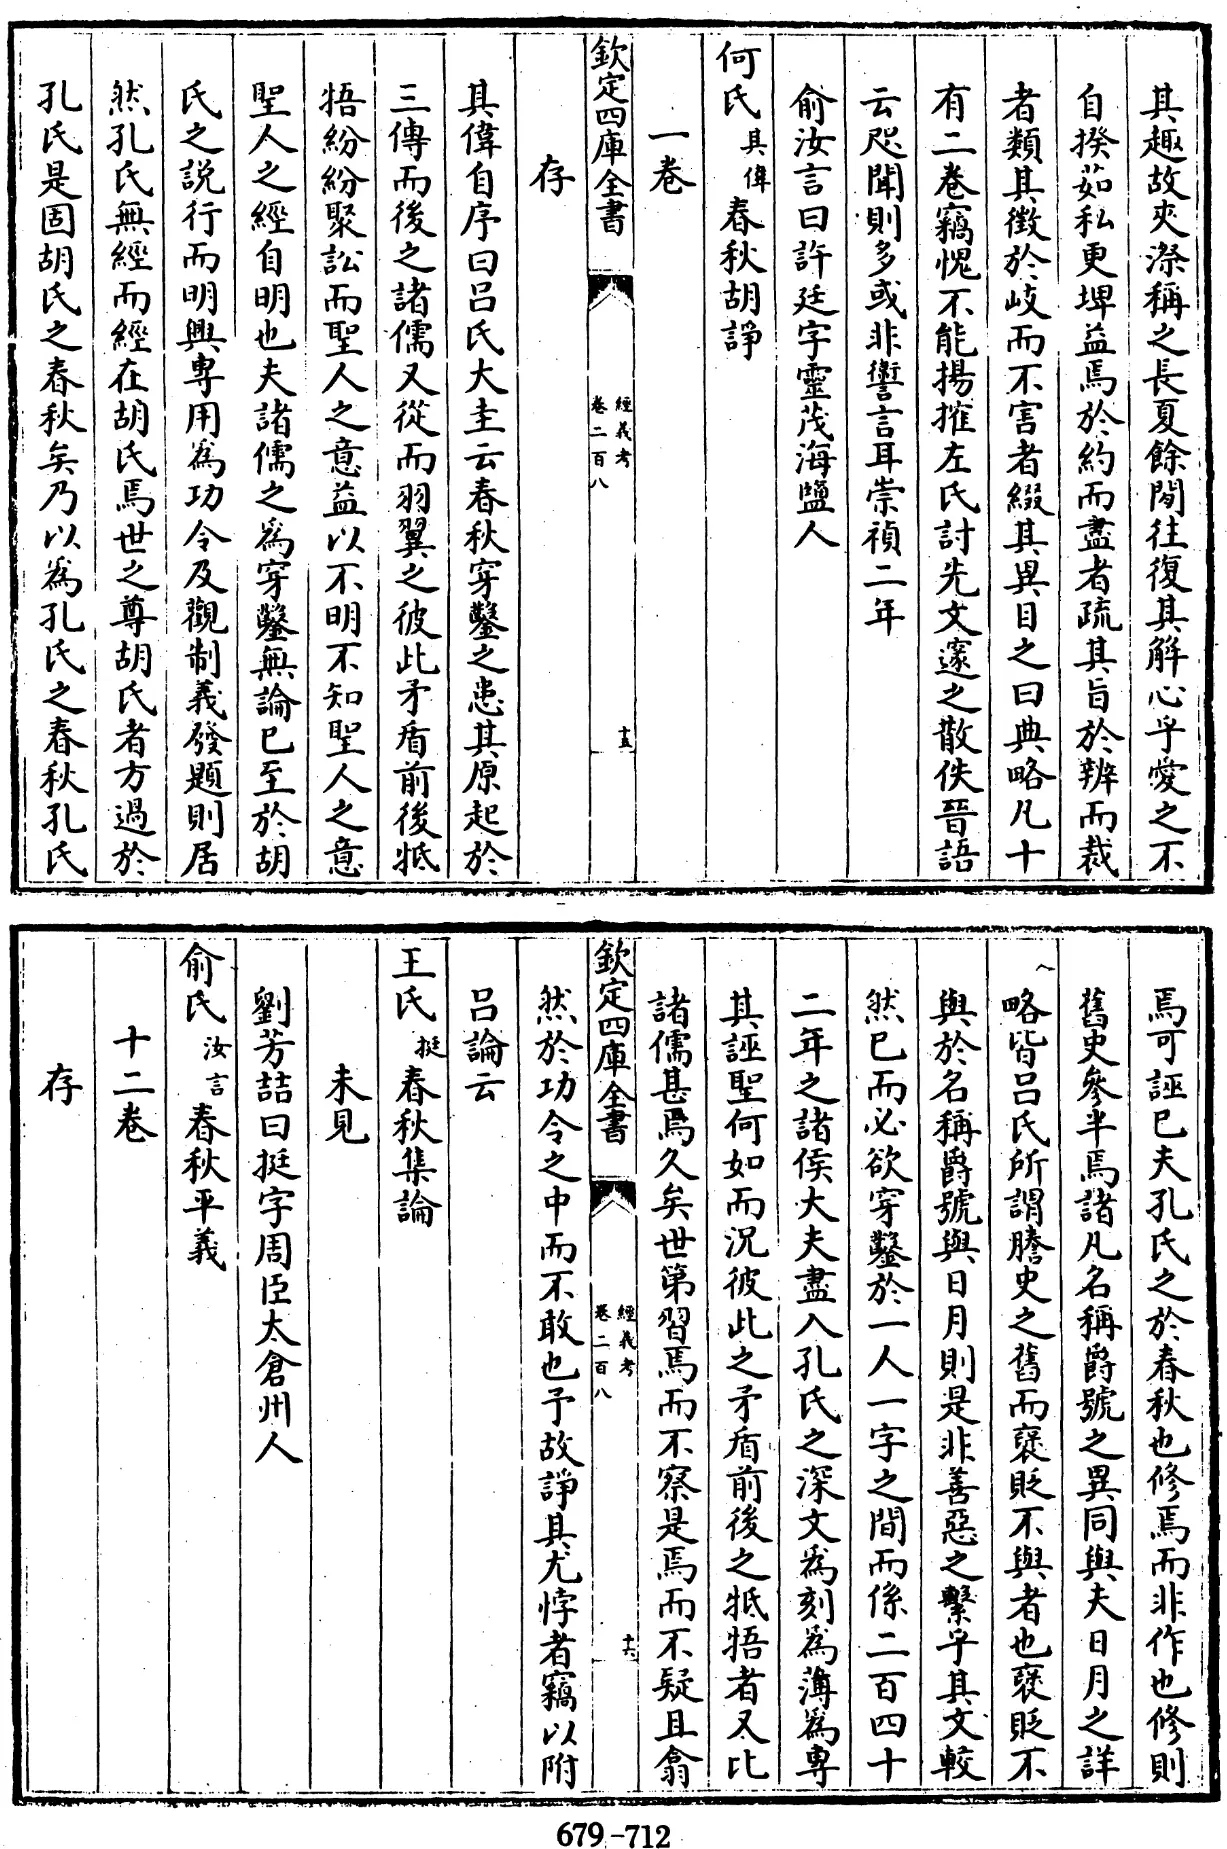 其趣故夾漈稱之長夏餘閒往復其解心乎愛之不
自揆茹私更埤益焉於約而盡者疏其旨於辨而裁
者類其徵於岐而不害者綴其異目之曰典略凡十
有二卷竊愧不能揚搉左氏討先文邃之散佚晉語
云咫聞則多或非讆言耳崇禎二年
俞汝言曰許廷字靈茂海鹽人
何氏其偉春秋胡諍
一卷
欽定四庫全書
經義考
卷二百八
十五
存
其偉自序曰呂氏大圭云春秋穿鑿之患其原起於
三傳而後之諸儒又從而羽翼之彼此矛盾前後牴
牾紛紛聚訟而聖人之意益以不明不知聖人之意
聖人之經自明也夫諸儒之為穿鑿無論已至於胡
氏之說行而明興專用為功令及觀制義發題則居
然孔氏無經而經在胡氏焉世之尊胡氏者方過於
孔氏是固胡氏之春秋矣乃以為孔氏之春秋孔氏
焉可誣已夫孔氏之於春秋也修焉而非作也修則
舊史參半焉諸凡名稱爵號之異同與夫日月之詳
略皆呂氏所謂謄史之舊而褒貶不與者也褒貶不
與於名稱爵號與日月則是非善惡之繫乎其文較
然已而必欲穿鑿於一人一字之間而係二百四十
二年之諸侯大夫盡入孔氏之深文為刻為薄為專
其誣聖何如而況彼此之矛盾前後之牴牾者又比
諸儒甚焉久矣世第習焉而不察是焉而不疑且翕
欽定四庫全書
經義考
卷二百八
十六
然於功令之中而不敢也予故諍其尤悖者竊以附
呂論云
王氏挺春秋集論
未見
劉芳喆曰挺字周臣太倉州人
俞氏汝言春秋平義
十二卷
存
679-712